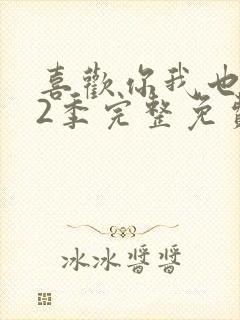 喜歡你我也
2季完整免費
冰冰醬醬